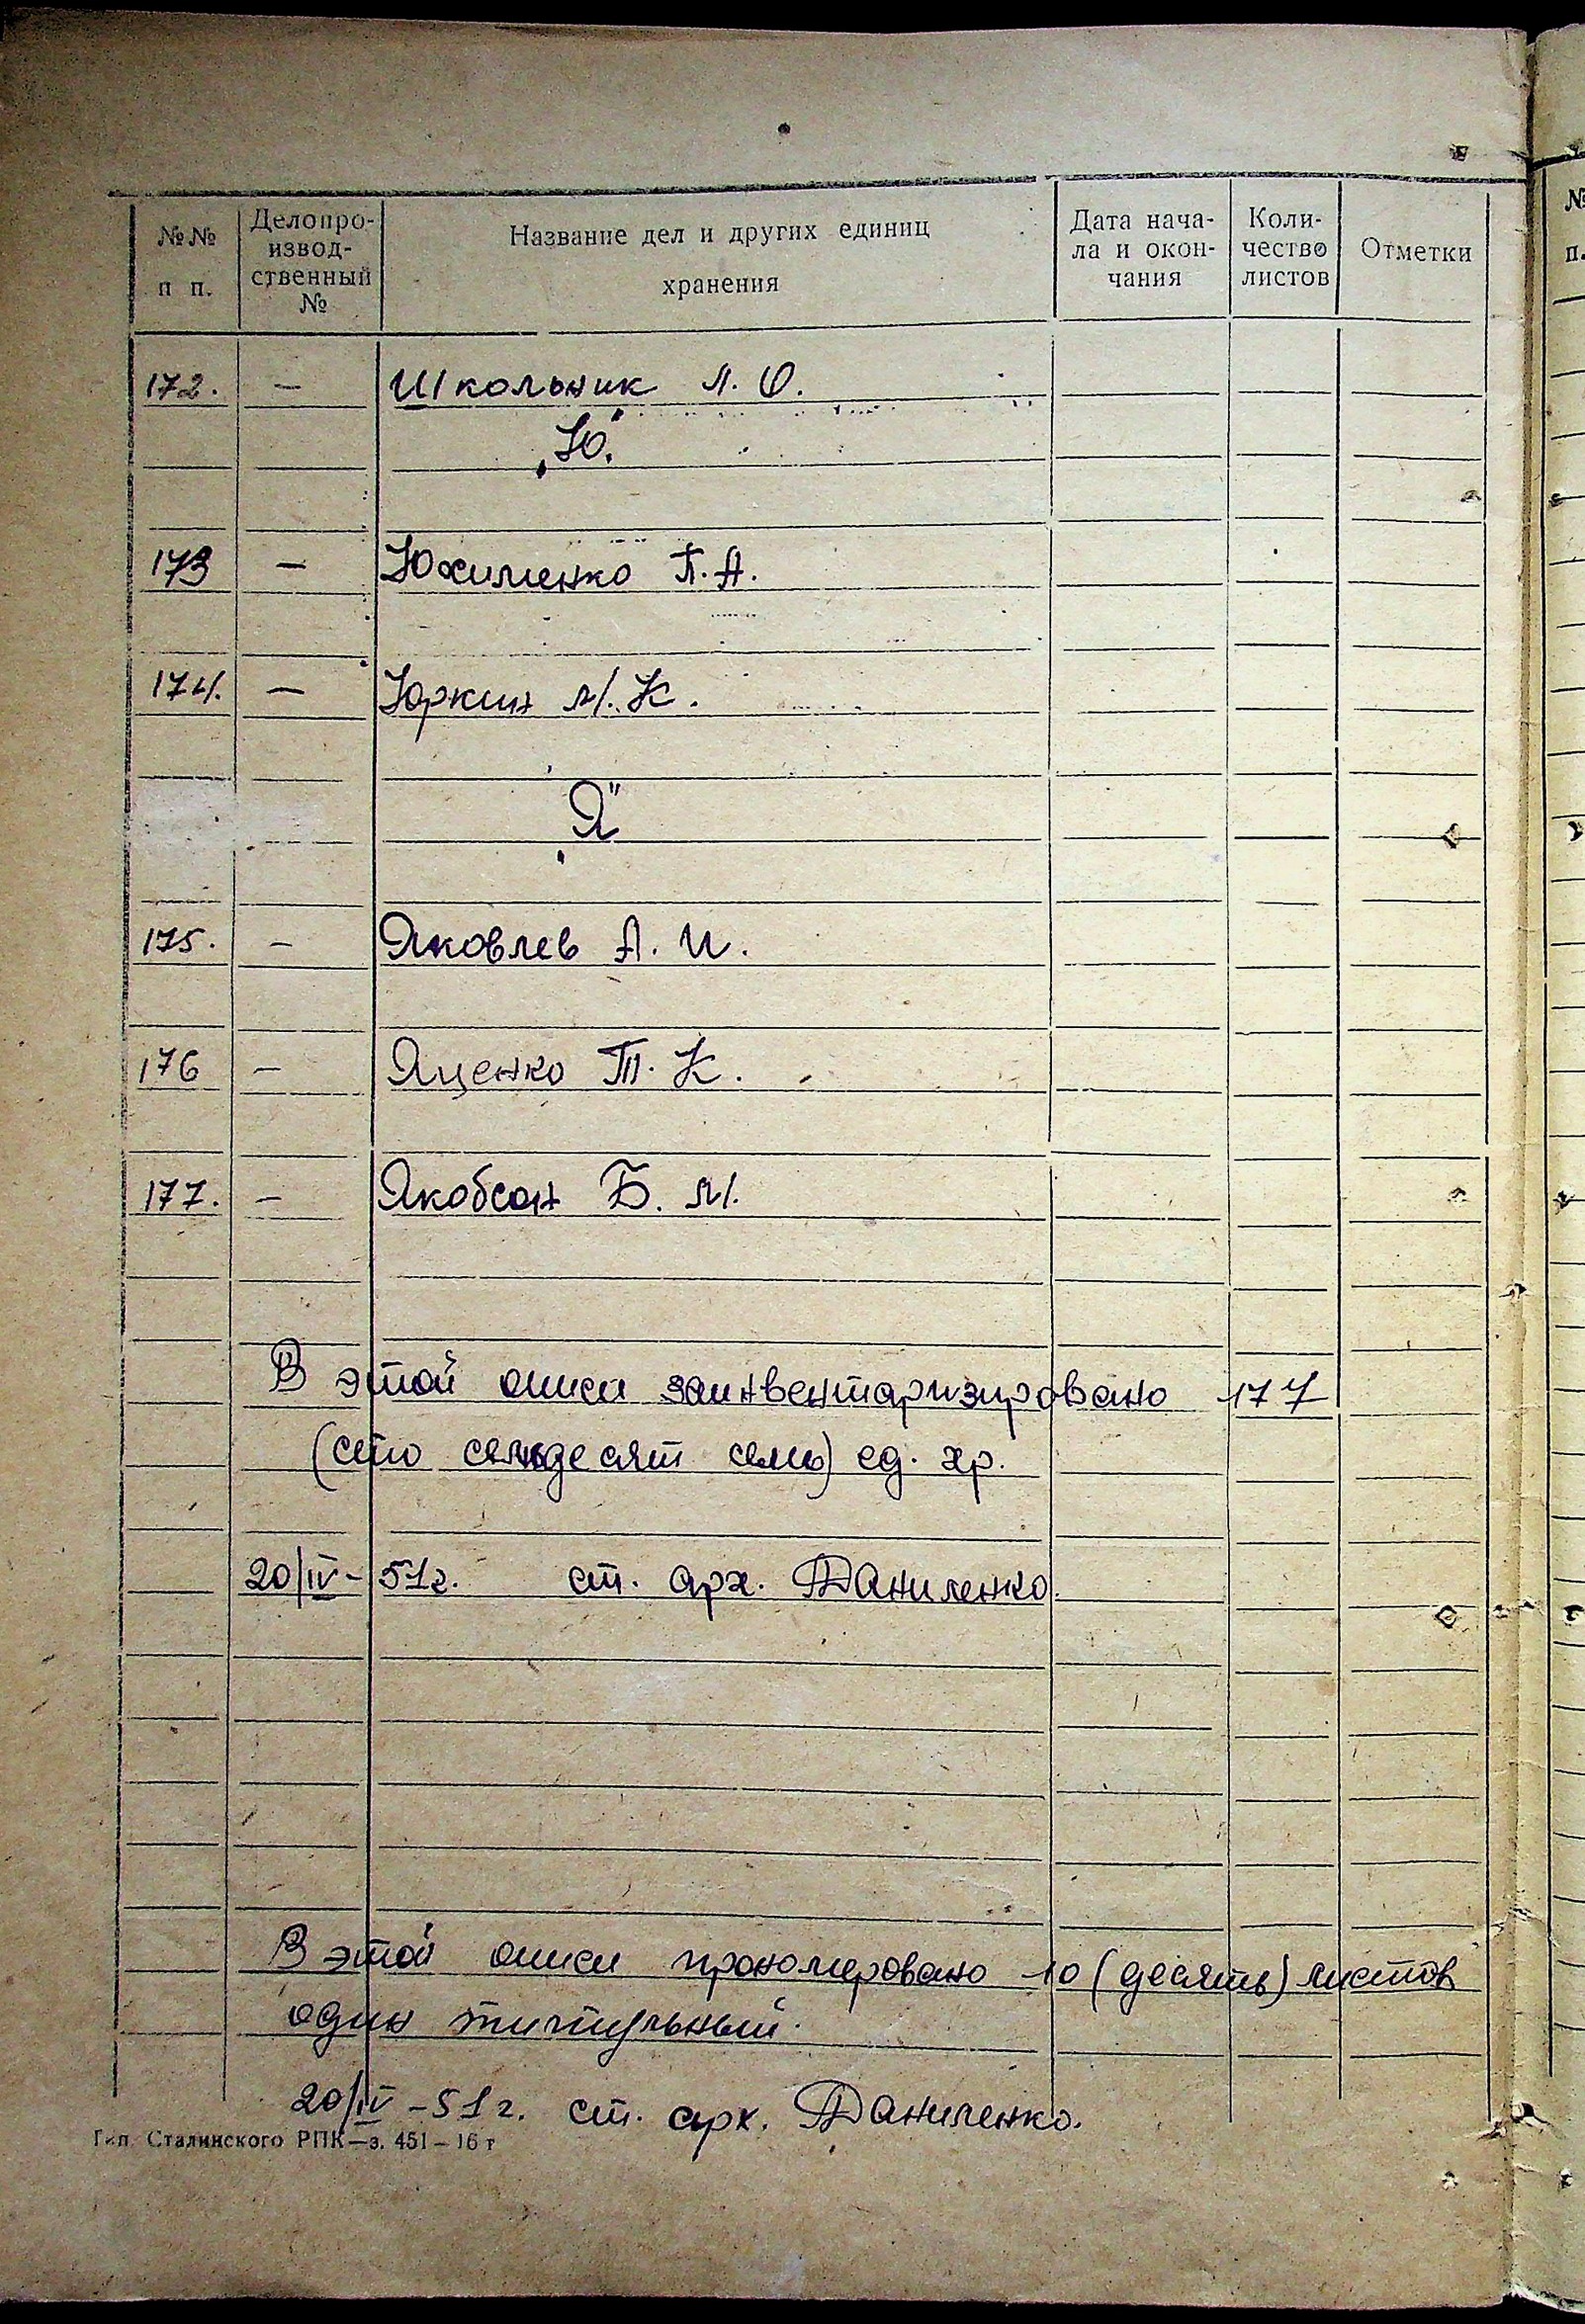 №№ п п.
Делопро-
извод-
ственный
№
Название дел и других единиц
хранения
Дата нача-
ла и окон-
чания
Коли-
чество
листов
Отметки
172. — Школьник Л. О.
„Ю"
173 — Юхименко П. А.
174. — Юркин М. К.
„Я"
175. — Яковлев А. И.
176 — Яценко Т. К.
177. — Якобсон Б. М.
В этой описи заинвентаризировано 177
(сто семьдесят семь) ед. хр.
20/IV-51г. ст. арх. Даниленко.
В этой описи прономеровано 10 (десять) листов
один титульный.
20/IV-51г. ст. арх. Даниленко.
Тип. Сталинского РПК—з. 451—16 т
№
п.